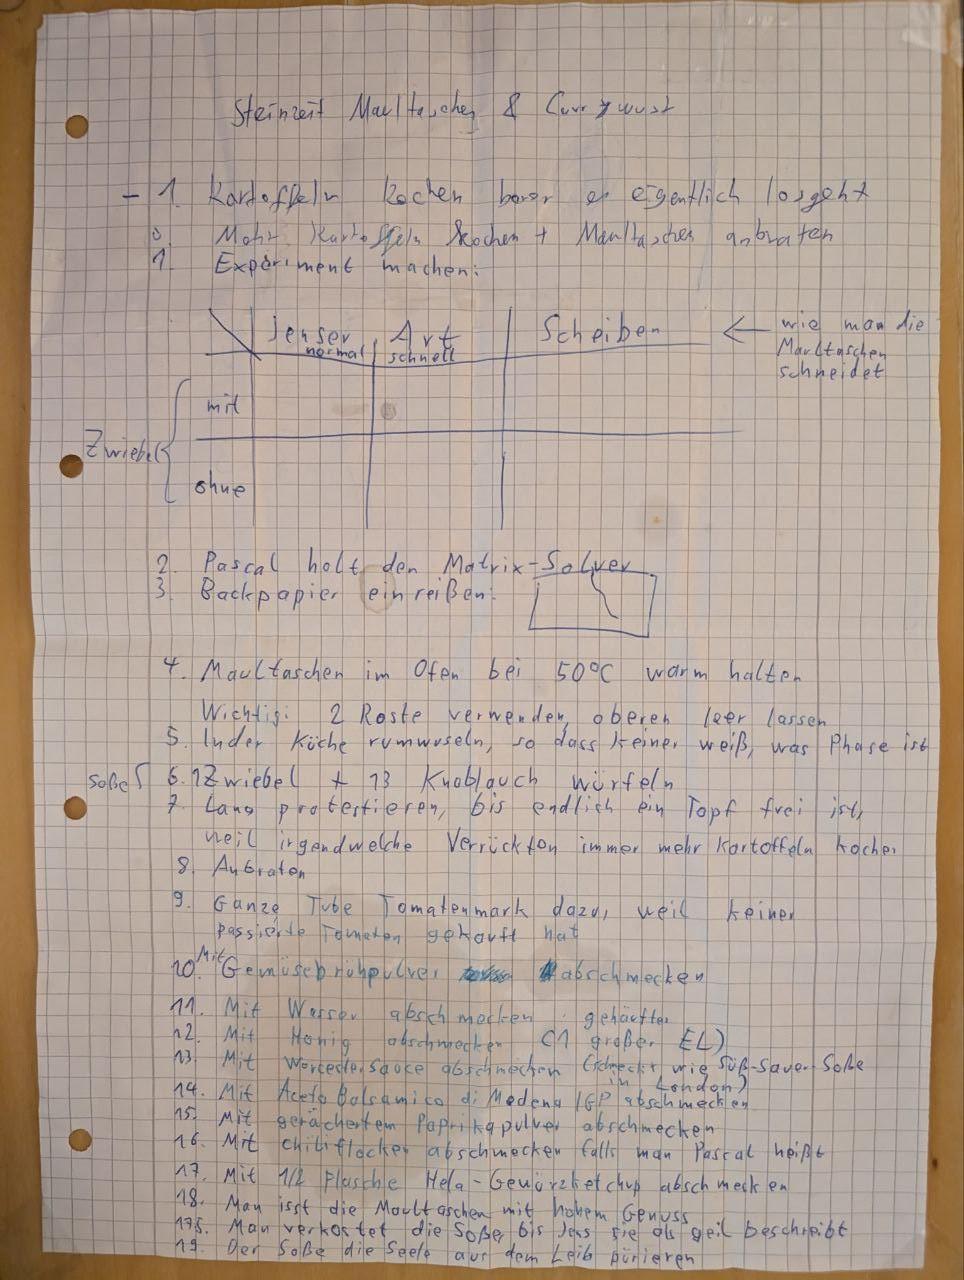 Steinzeit Maultaschen & Currywust
-1. Kartoffeln kochen bevor es eigentlich losgeht
0. Mehr Kartoffeln kochen + Maultaschen anbraten
1. Experiment machen:
Jenser Art Scheiben ← wie man die
normal schnell Maultaschen
schneidet
mit
Zwiebel
ohne
2. Pascal holt den Matrix-Solver
3. Backpapier einreißen:
4. Maultaschen im Ofen bei 50°C warm halten
Wichtig: 2 Roste verwenden, oberen leer lassen
5. In der Küche rumwuseln, so dass keiner weiß, was Phase ist
Soße 6. 1 Zwiebel + 13 Knoblauch würfeln
7. Lang protestieren, bis endlich ein Topf frei ist,
weil irgendwelche Verrückten immer mehr Kartoffeln kochen
8. Anbraten
9. Ganze Tube Tomatenmark dazu, weil keiner
passierte Tomaten gekauft hat
10. Mit Gemüsebrühpulver abschmecken
11. Mit Wasser abschmecken gehäufter
12. Mit Honig abschmecken (1 großer EL)
13. Mit Worcestersauce abschmecken (schmeckt wie Süß-Sauer-Soße
in London)
14. Mit Aceto Balsamico di Modena IGP abschmecken
15. Mit geräuchertem Paprikapulver abschmecken
16. Mit Chiliflocken abschmecken falls man Pascal heißt
17. Mit 1/2 Flasche Hela-Gewürzketchup abschmecken
18. Man isst die Maultaschen mit hohem Genuss
17.5. Man verkostet die Soße, bis Jens sie als geil beschreibt
19. Der Soße die Seele aus dem Leib pürieren